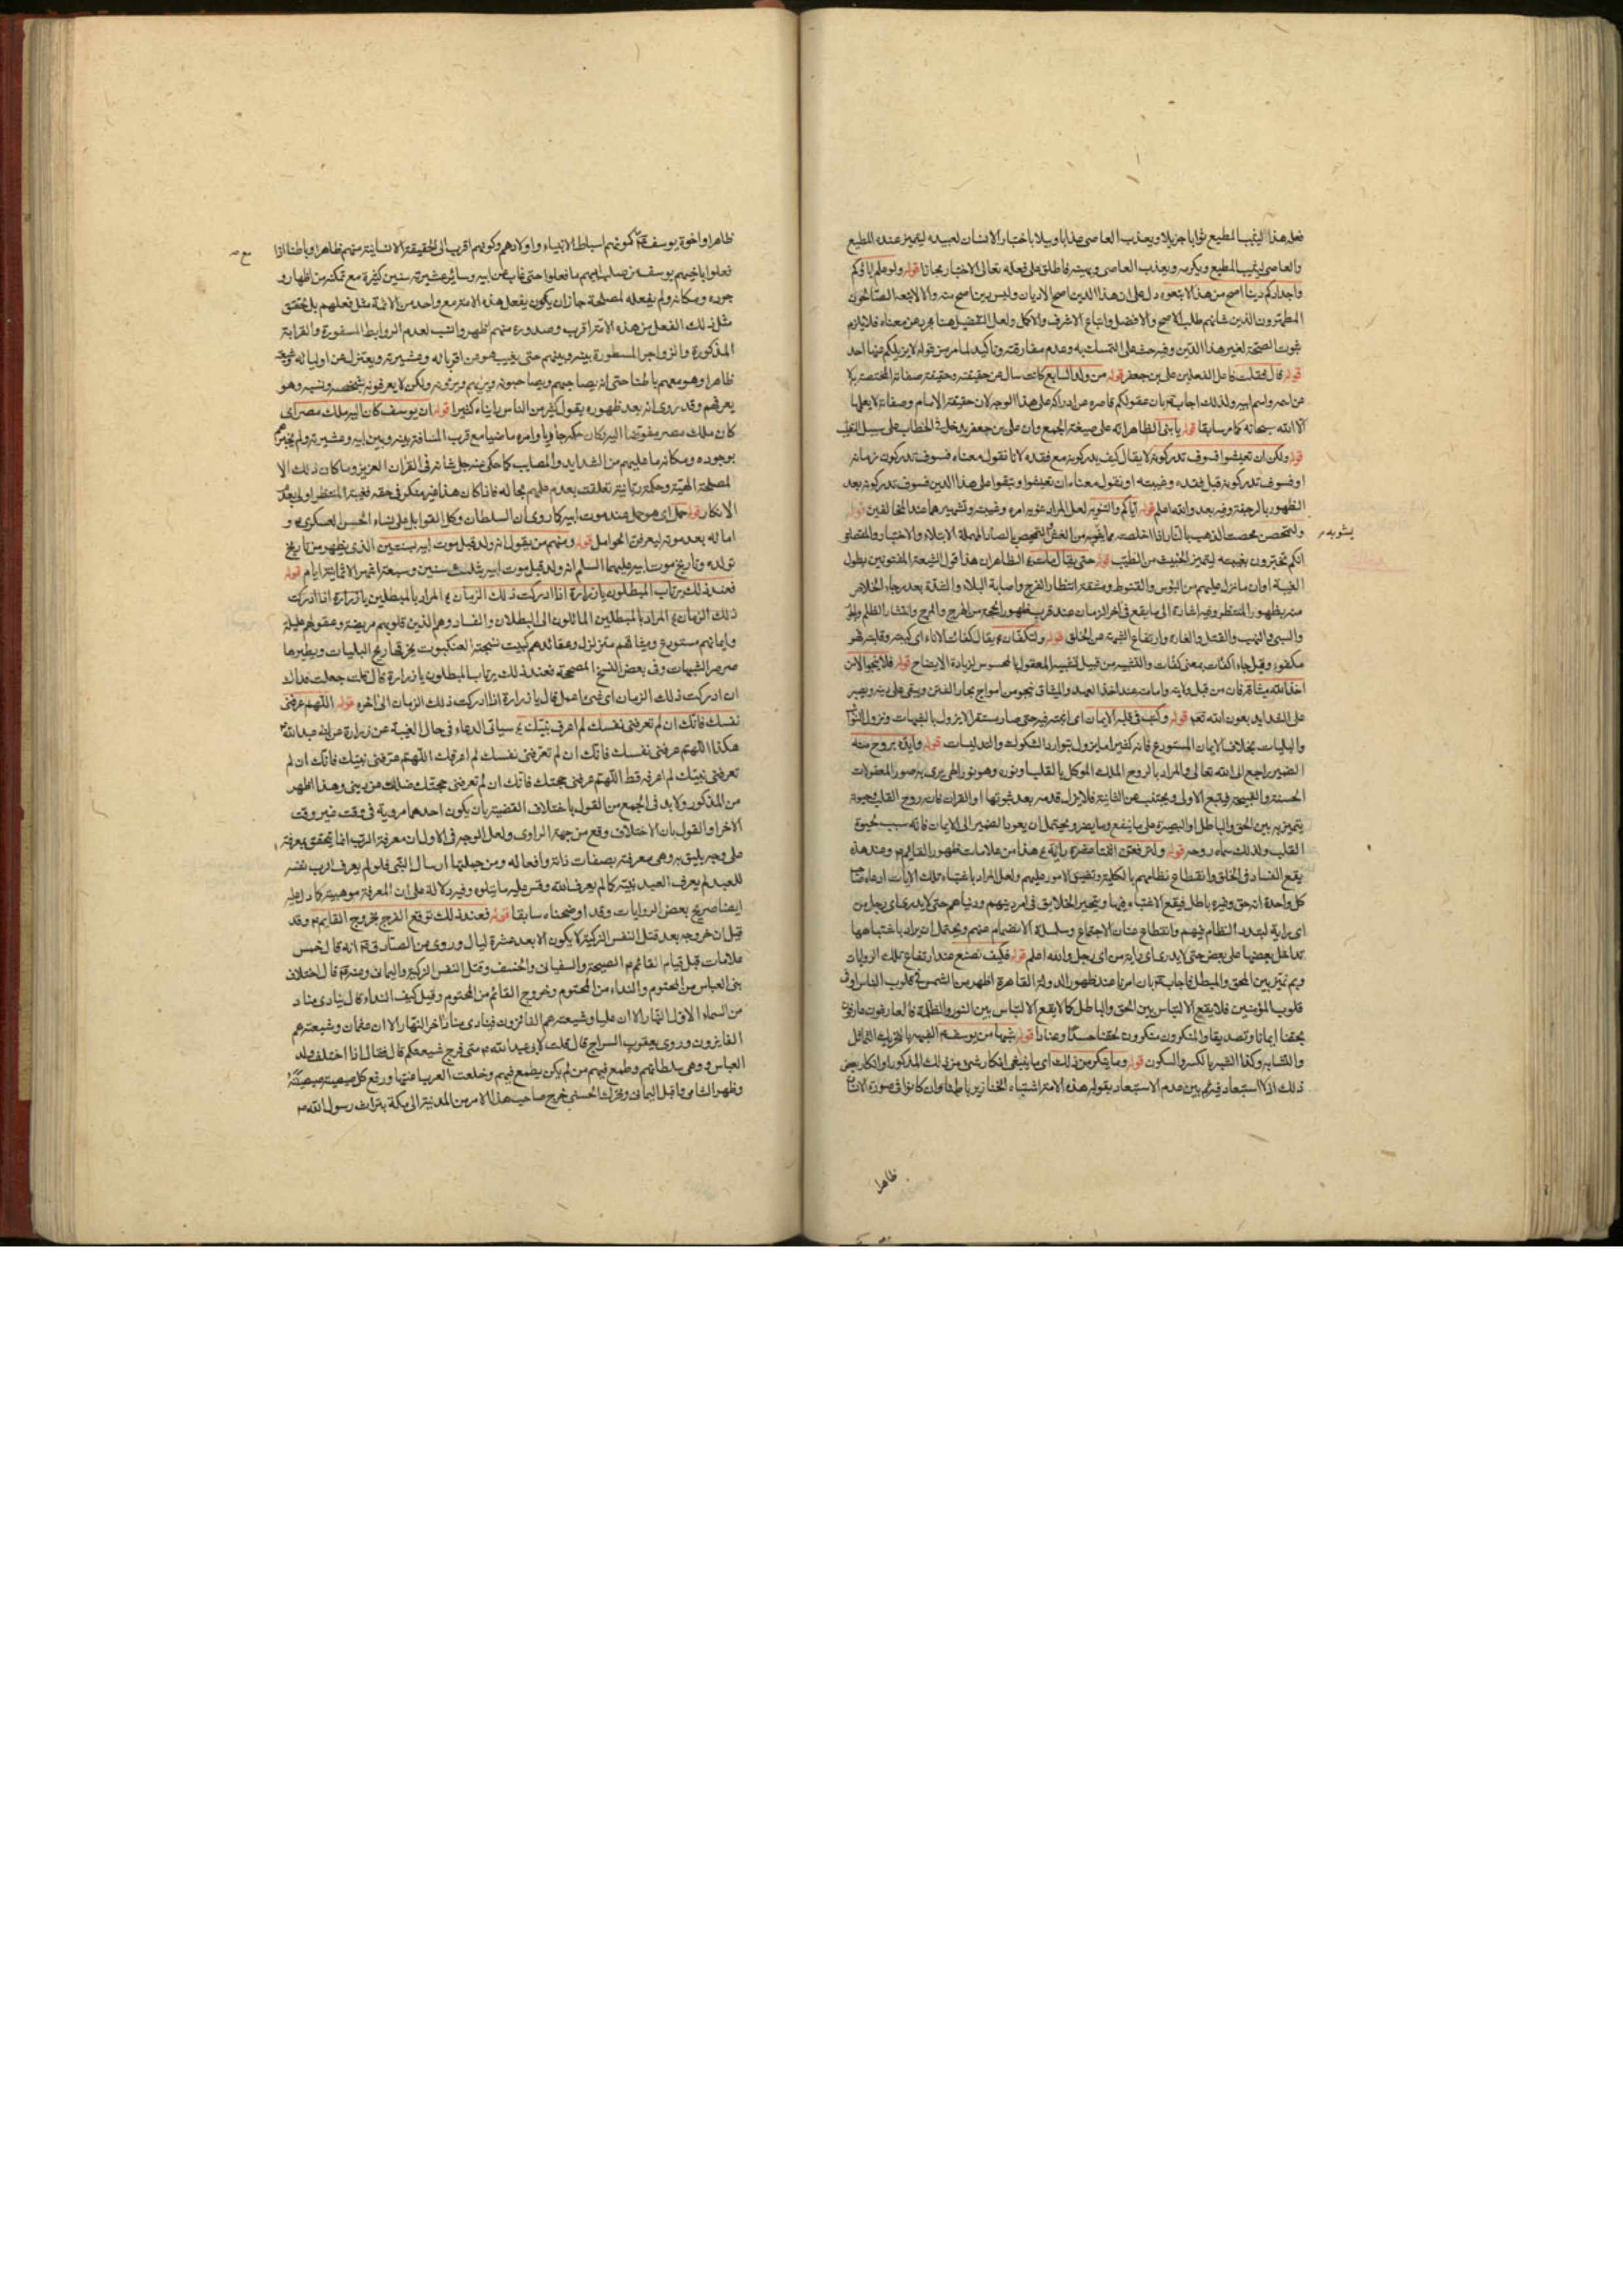 فعل هذا ليثيب المطيع ثوابا جزيلا ويعذب العاصى عذابا وبيلا باختبار الانسان لعبيده ليتميز عنده المطيع
والعاصى ليثيب المطيع ويكرمه ويعذب العاصى ويهينه فاطلق على فعله تعالى الاختبار مجازا قوله ولو علم اباؤكم
واجدادكم دينا اصح من هذا لاتبعوه دل على ان هذا الدين اصح الاديان وليس دين اصح منه والا لاتبعه الصالحون
المطهرون الذين شانهم طلب الاصح والافضل واتباع الاشرف والاكمل ولعل التفضيل هنا مجرد عن معناه فلا يلزم
ثبوت الصحة لغير هذا الدين وفيه حث على التمسك به وعدم مفارقته وتاكيد لما مر من قوله لا يزيلكم عنها احد
قوله قال فقلت فاعل الفعلين على بن جعفر قوله من ولد السابع كانت سال عن حقيقته وحقيقة صفاته المختصة به لا
عن اسمه واسم ابيه ولذلك اجاب بان عقولكم قاصرة عن ادراكه على هذا الوجه لان حقيقة الامام وصفاته لا يعلمها
الا الله سبحانه كما مر سابقا قوله يا بنى الظاهر انه على صيغة الجمع وان على بن جعفر يدخل فى الخطاب على سبيل التغليب
قوله ولكن ان تعيشوا فسوف تدركونه لا يقال كيف يدركونه مع فقده لانا نقول معناه فسوف تدركون زمانه
او فسوف تدركونه قبل فقده وغيبته او نقول معناه ان تعيشوا وتبقوا على هذا الدين فسوف تدركونه بعد
الظهور بالرجعة وفيه بعد والله اعلم قوله اياكم والتنويه لعل المراد تنويه امره وغيبته وتشهيرهما عند المخالفين قوله
ولتمحصن محصت الذهب بالنار اذا اخلصته مما يشوبه من الغش والتمحيص بالصاد المهملة الابتلاء والاختبار والمعنى
يشوبه
انكم تختبرون بغيبته ليتميز الخبيث من الطيب قوله حتى يقال مات الظاهر ان هذا قول الشيعة المفتونين بطول
الغيبة او ان ما نزل عليهم من البؤس والقنوط ومشقة انتظار الفرج واصابة البلاء والشدة بعد رجاء الخلاص
منه بظهور المنتظر وفيه اشارة الى ما يقع فى اخر الزمان عند قرب ظهور الحجة من الهرج والمرج وانتشار الظلم والجور
والسبى والنهب والقتل والغارة وارتفاع الشبهة عن الخلق قوله ولتكفأن يقال كفأت الاناء اى كببته وقلبته فهو
مكفوء وقيل جاء اكفأت بمعنى كفأت والتشبيه من قبيل تشبيه المعقول بالمحسوس لزيادة الايضاح قوله فلا ينجو الا من
اخذ الله ميثاقه فان من قبل ولايته وامامته عند اخذ العهد والميثاق ينجو من امواج بحار الفتن ويبقى على دينه ويصبر
على الشدايد بعون الله تعم قوله وكتب فى قلبه الايمان اى اثبته فيه حتى صار مستقرا لا يزول بالشبهات ونزول النوائب
والبليات بخلاف الايمان المستودع فانه كثيرا ما يزول بتوارد الشكوك والتدليسات قوله وايده بروح منه
الضمير راجع الى الله تعالى والمراد بالروح الملك الموكل بالقلب او نور وهو نور الهى يرى به صور المعقولات
الحسنة والقبيحة فيتبع الاولى ويجتنب عن الثانية فلا يزل قدمه بعد ثبوتها او القران فانه روح القلب وحيوة
يتميز به بين الحق والباطل او البصيرة على ما ينفع وما يضر ويحتمل ان يعود الضمير الى الايمان فانه سبب لحيوة
القلب ولذلك سماه روحه قوله ولترفعن اثنتا عشرة راية هذا من علامات ظهور القايم وعند هذه
يقع الفساد فى الخلق وانقطاع نظامهم بالكلية وتضيق الامور عليهم ولعل المراد باشتباه تلك الايات ادعاء
كل واحدة انه حق وغيره باطل فيقع الاشتباه فيها ويتحير الخلايق فى امر دينهم ودنياهم حتى لا يدرى اى رجل من
اى راية لتبدد النظام فيهم وانقطاع عنان الاجتماع وسلسلة الانضمام عنهم ويحتمل ان يراد باشتباهها
تداخل بعضها على بعض حتى لا يدرى اى راية من اى رجل والله اعلم قوله فكيف نصنع عند ارتفاع تلك الرايات
وبم نميز بين المحق والمبطل فاجاب بان امرنا عند ظهور الدولة القاهرة اظهر من الشمس فى قلوب الناس او فى
قلوب المؤمنين فلا يقع الالتباس بين الحق والباطل كما لا يقع الالتباس بين النور والظلمة فالعارفون عارفون
بحقنا ايمانا وتصديقا والمنكرون منكرون لحقنا حسدا وعنادا قوله شبها من يوسف الشبه بالتحريك التماثل
والتشابه وكذا الشبه بالكسر والسكون قوله وما ينكر من ذلك اى ما ينبغى انكار شىء من ذلك المذكور او انكار بعض
ذلك اذ لا استبعاد فيه ثم بين عدم الاستبعاد بقوله هذه الامة اشباه الخنازير باطنا وان كانوا فى صورة الانسان
ظاهرا
ظاهرا واخوة يوسف كونهم اسباط الانبياء واولادهم وكونهم اقرب الى الحقيقة الانسانية منهم ظاهرا وباطنا اذا
فعلوا باخيهم يوسف من صلب ابيهم ما فعلوا حتى غاب عن ابيه وساير عشيرته سنين كثيرة مع تمكنه من اظهار و
جوده ومكانه ولم يفعله لمصلحة جاز ان يكون يفعل هذه الامة مع واحد من الائمة مثل فعلهم بل تحقق
مثل ذلك الفعل من هذه الامة اقرب وصدوره منهم اظهر وانسب لعدم الروابط المسفورة والقرابة
المذكورة والزواجر المسطورة بينه وبينهم حتى يغيب هو من اقربائه وعشيرته ويعتزل عن اوليائه
ظاهرا وهو معهم باطنا حتى انه يصاحبهم ويصاحبونه ويريهم ويرونه ولكن لا يعرفونه بشخصه ونسبه وهو
يعرفهم وقد روى انه بعد ظهوره يقول كثير من الناس رايناه كثيرا قوله ان يوسف كان اليه ملك مصر اى
كان ملك مصر مفوضا اليه وكان حكمه جاريا وامره ماضيا مع قرب المسافة بينه وبين ابيه وعشيرته ولم يخبرهم
بوجوده ومكانه ما عليهم من الشدايد والمصايب كما حكى عنه جل شانه فى القران العزيز وما كان ذلك الا
لمصلحة الهية وحكمة ربانية تعلقت بعدم علمهم بحاله فاذا كان هذا غير منكر فى حقه فغيبة المنتظر اولى بعدم
الانكار قوله حمل اى هو حمل عند موت ابيه كما روى ان السلطان وكل القوابل على نساء الحسن العسكرى و
امائه بعد موته ليعرفن الحوامل قوله ومنهم من يقول انه ولد قبل موت ابيه بسنتين الذى يظهر من تاريخ
تولده وتاريخ موت ابيه عليهما السلم انه ولد قبل موت ابيه بثلث سنين وسبعة اشهر الا ثمانية ايام قوله
فعند ذلك يرتاب المبطلون يا زرارة اذا ادركت ذلك الزمان المراد بالمبطلين يا زرارة اذا ادركت
ذلك الزمان المراد بالمبطلين المائلون الى البطلان والفساد وهم الذين قلوبهم مريضة وعقولهم عليلة
وايمانهم مستودع وميثاقهم متزلزل وعقائدهم كبيت نسجته العنكبوت يخرقها ريح البليات ويطيرها
صرصر الشبهات وفى بعض النسخ المصححة فعند ذلك يرتاب المبطلون يا زرارة قال قلت جعلت فداك
ان ادركت ذلك الزمان اى شىء اعمل قال يا زرارة اذا ادركت ذلك الزمان الى اخره قوله اللهم عرفنى
نفسك فانك ان لم تعرفنى نفسك لم اعرف نبيك سياتى الدعاء فى حال الغيبة عن زرارة عن ابى عبد الله
هكذا اللهم عرفنى نفسك فانك ان لم تعرفنى نفسك لم اعرفك اللهم عرفنى نبيك فانك ان لم
تعرفنى نبيك لم اعرفه قط اللهم عرفنى حجتك فانك ان لم تعرفنى حجتك ضللت عن دينى وهذا اظهر
من المذكور ولا بد فى الجمع من القول باختلاف القضية بان يكون احدهما مروية فى وقت غير وقت
الاخر او القول بان الاختلاف وقع من جهة الراوى ولعل الوجه فى الاول ان معرفة الرب انما يتحقق بمعرفته
على وجه يليق به وهى معرفته بصفات ذاته وافعاله ومن جملتها ارسال النبى فلو لم يعرف الرب نفسه
للعبد لم يعرف العبد نبيه كما لم يعرف الله وقس عليه ما يتلوه وفيه دلالة على ان المعرفة موهبية كما دل عليه
ايضا صريح بعض الروايات وقد اوضحناه سابقا قوله فعند ذلك توقع الفرج بخروج القايم وقد
قيل ان خروجه بعد قتل النفس الزكية لا يكون الا بعد عشرة ليال وروى عن الصادق انه قال خمس
علامات قبل قيام القائم الصيحة والسفيانى والخسف وقتل النفس الزكية واليمانى وعنه قال اختلاف
بنى العباس من المحتوم والنداء من المحتوم وخروج القائم من المحتوم وقيل كيف النداء قال ينادى مناد
من السماء الاول النهار الا ان عليا وشيعته هم الفائزون فينادى مناد اخر النهار الا ان عثمان وشيعته هم
الفايزون وروى يعقوب السراج قال قلت لابى عبد الله متى فرج شيعتكم قال فقال اذا اختلف ولد
العباس ووهى سلطانهم وطمع فيهم من لم يكن يطمع فيهم وخلعت العرب اعنتها ورفع كل ذى صيصية صيصيته
وظهر الشامى واقبل اليمانى وتحرك الحسنى خرج صاحب هذا الامر من المدينة الى مكة بتراث رسول الله